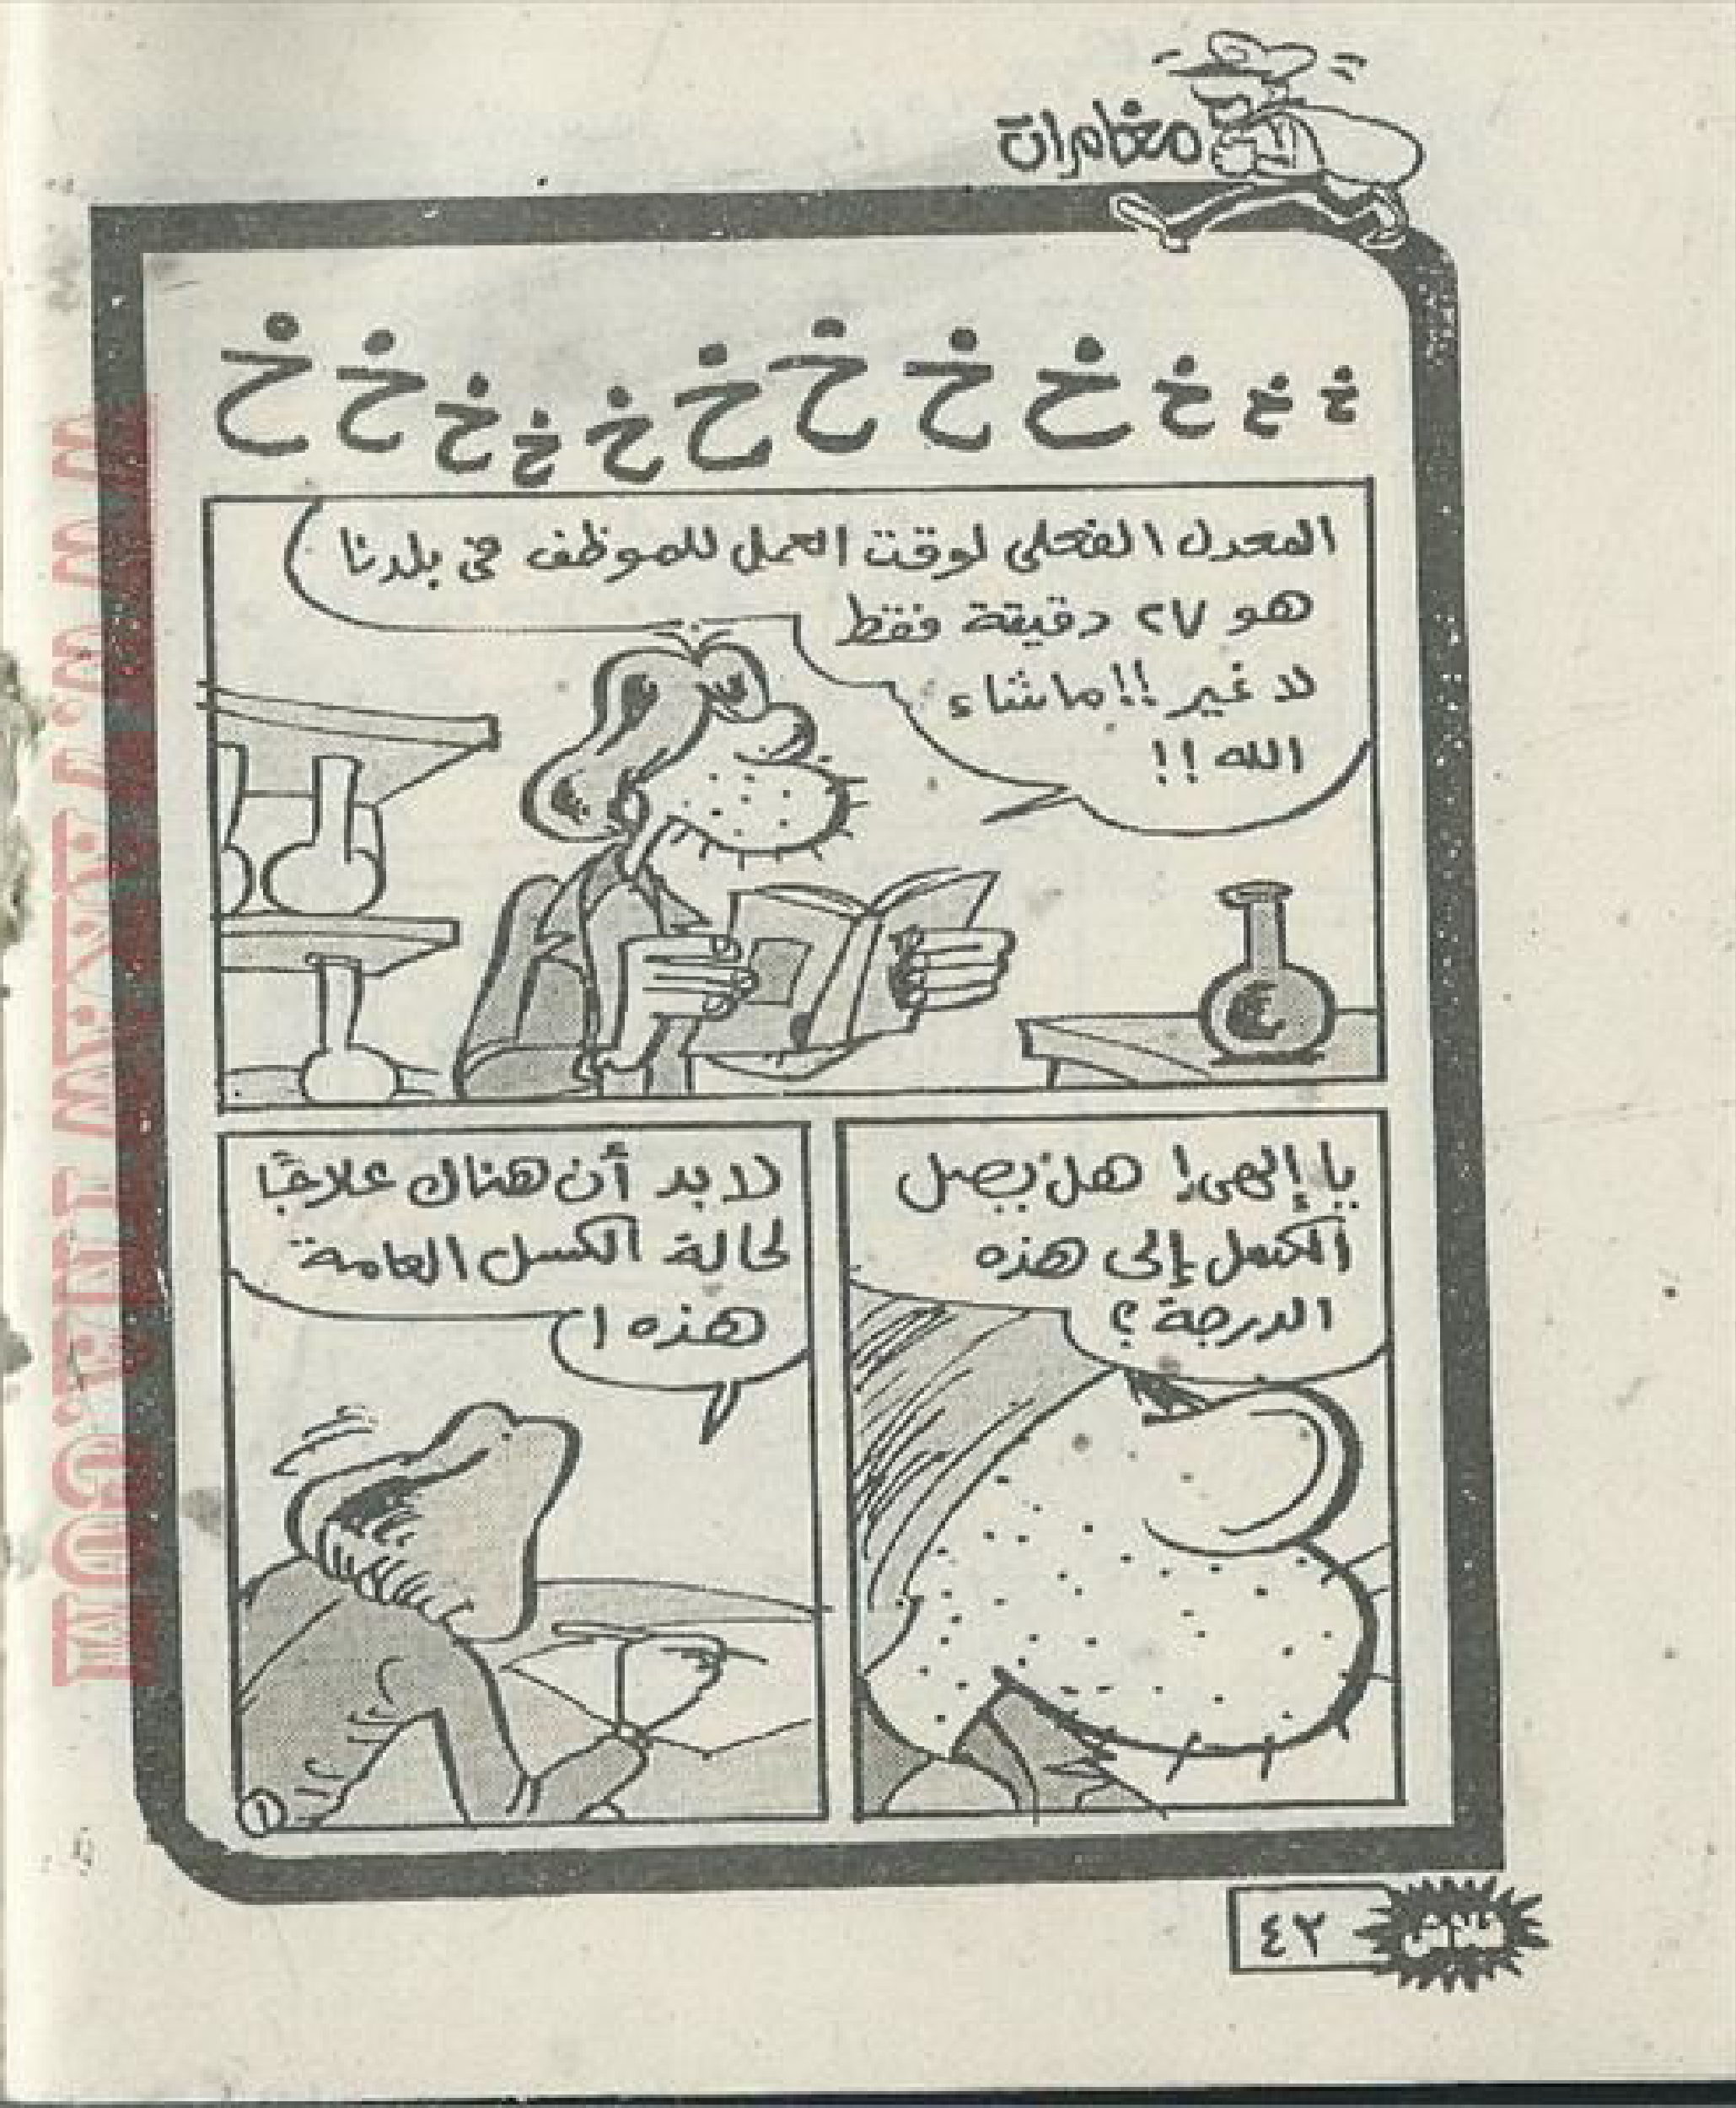 مغامرات
خ خ خ خ خ خ خ خ خ خ خ خ
المعدل الفعلى لوقت العمل للموظف فى بلدنا
هو ٢٧ دقيقة فقط
لا غير !! ماشاء
الله !!
يا إلهى! هل يصل
الكسل إلى هذه
الدرجة ؟
لا بد أن هناك علاجًا
لحالة الكسل العامة
هذه !
١
٤٢
WWW.ARABCOMICS.NET